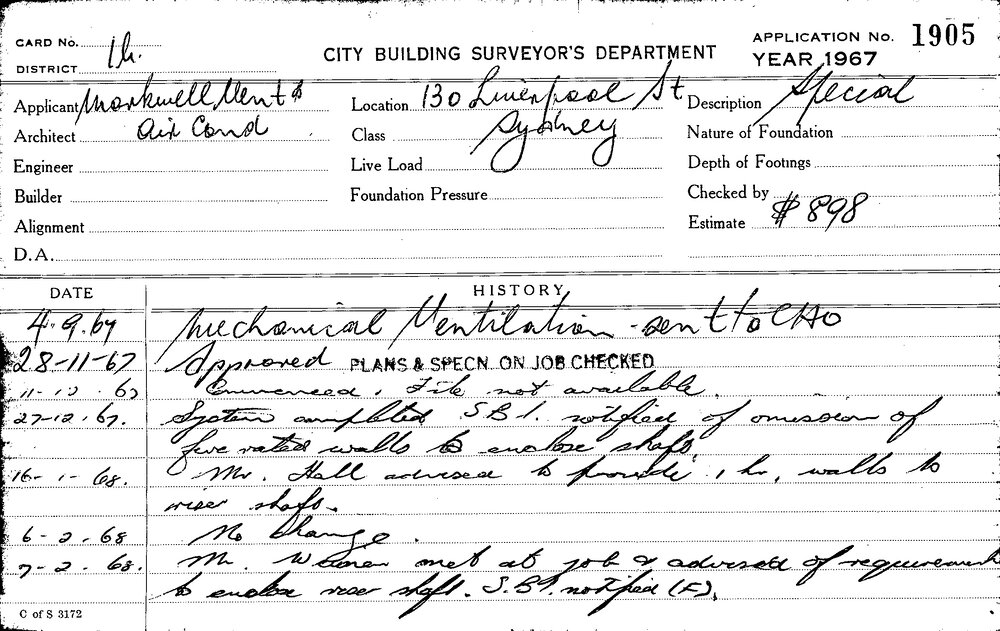 CARD No. 1h.
DISTRICT
CITY BUILDING SURVEYOR'S DEPARTMENT
APPLICATION No. 1905
YEAR 1967
Applicant Markwell Vent &
Architect Air Cond
Engineer
Builder
Alignment
D.A.
Location 130 Liverpool St
Class Sydney
Live Load
Foundation Pressure
Description Special
Nature of Foundation
Depth of Footings
Checked by
Estimate $898
DATE HISTORY
4.9.67 Mechanical Ventilation - sent to CHO
28-11-67 Approved PLANS & SPECN. ON JOB CHECKED
11-12.67 Commenced. File not available.
27-12.67. System completed S.B.I. notified of omission of
fire rated walls to enclose shaft.
16-1-68. Mr. Hall advised to provide 1 hr. walls to
riser shaft.
6-2.68 No change.
7-2.68. Mr. met at job & advised of requirement
to enclose riser shaft. S.B.I. notified (F).
C of S 3172